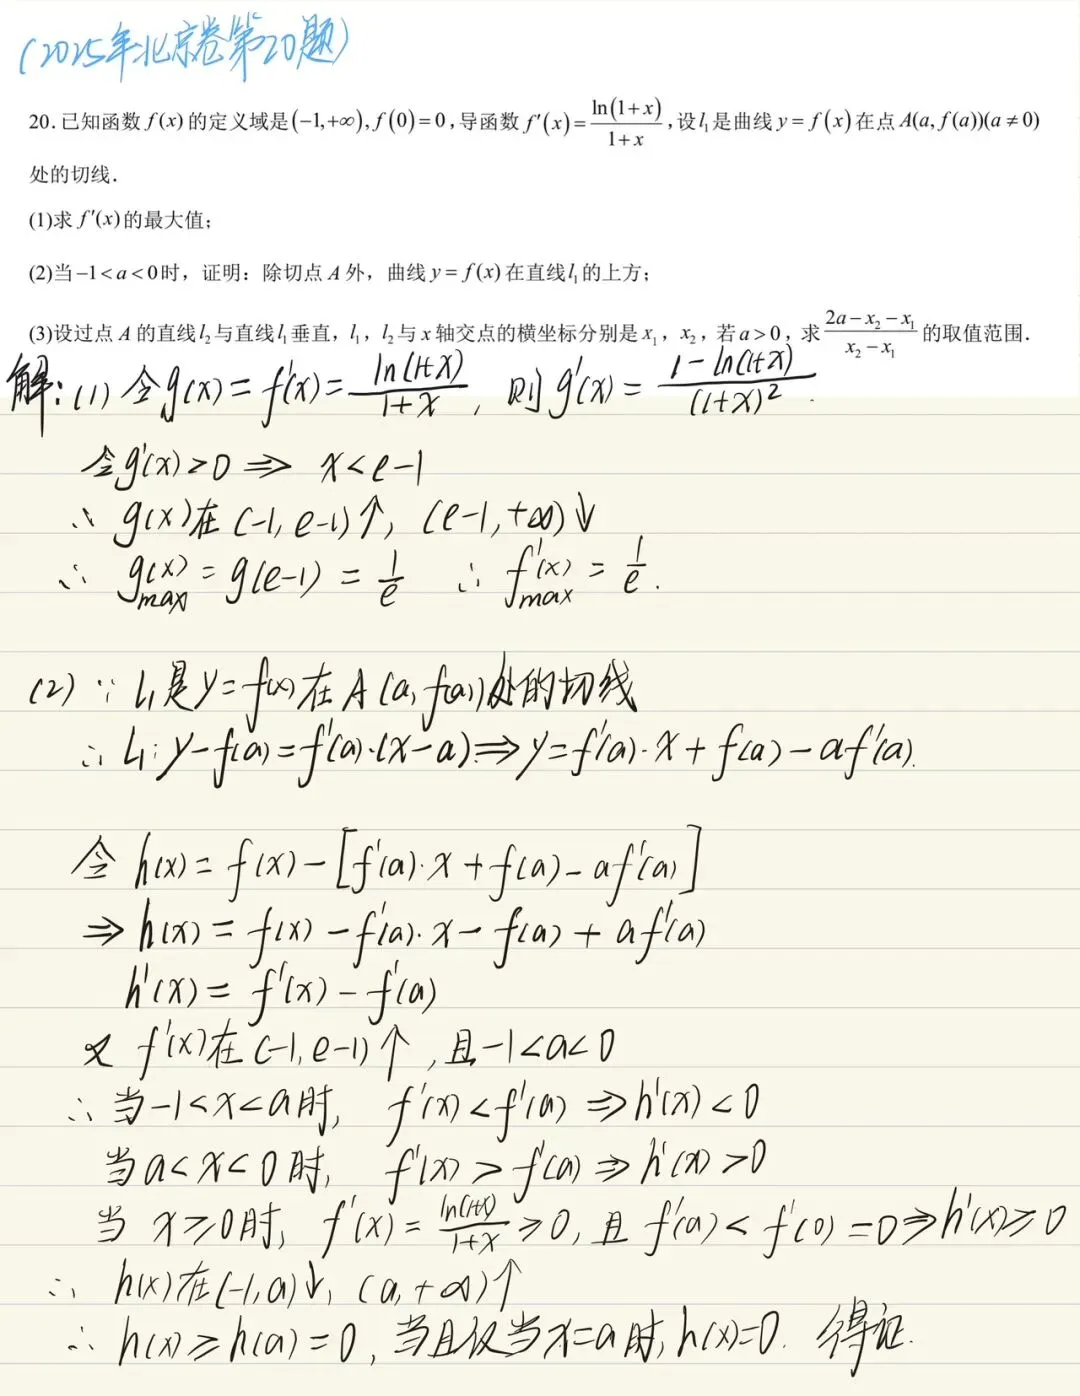 (2025年北京卷第20题)
20.已知函数f(x)的定义域是(-1,+∞),f(0)=0,导函数f'(x)=ln(1+x)/(1+x),设l₁是曲线y=f(x)在点A(a,f(a))(a≠0)
处的切线.
(1)求f'(x)的最大值;
(2)当-1<a<0时，证明：除切点A外，曲线y=f(x)在直线l₁的上方;
(3)设过点A的直线l₂与直线l₁垂直，l₁，l₂与x轴交点的横坐标分别是x₁，x₂，若a>0，求(2a-x₂-x₁)/(x₂-x₁)的取值范围.
解:(1) 令g(x)=f'(x)=ln(1+x)/(1+x), 则g'(x)=(1-ln(1+x))/(1+x)².
令g'(x)>0⇒ x<e-1
∴ g(x)在(-1,e-1)↑, (e-1,+∞)↓
∴ g(x)max=g(e-1)=1/e ∴ f'(x)max=1/e.
(2) ∵ l₁是y=f(x)在A(a,f(a))处的切线
∴ l₁:y-f(a)=f'(a)·(x-a)⇒y=f'(a)·x+f(a)-af'(a).
令 h(x)=f(x)-[f'(a)·x+f(a)-af'(a)]
⇒ h(x)=f(x)-f'(a)·x-f(a)+af'(a)
h'(x)=f'(x)-f'(a)
又 f'(x)在(-1,e-1)↑,且-1<a<0
∴ 当-1<x<a时, f'(x)<f'(a)⇒h'(x)<0
当a<x<0时, f'(x)>f'(a)⇒h'(x)>0
当 x≥0时, f'(x)=ln(1+x)/(1+x)≥0,且f'(a)<f'(0)=0⇒h'(x)≥0
∴ h(x)在(-1,a)↓, (a,+∞)↑
∴ h(x)≥h(a)=0,当且仅当x=a时,h(x)=0. 得证.